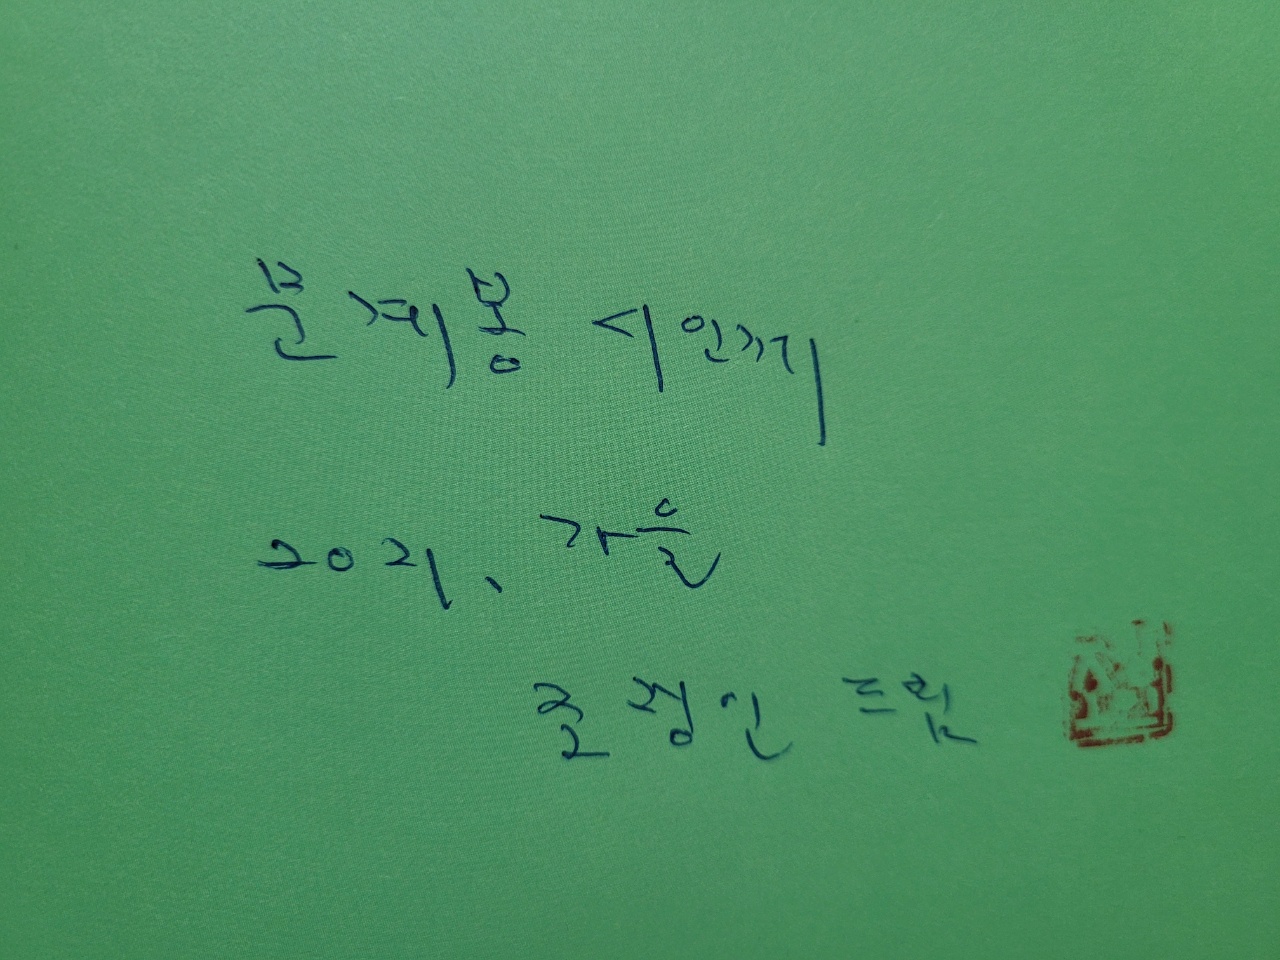 문계봉 시인께
2021、 가을
호 정인 드림